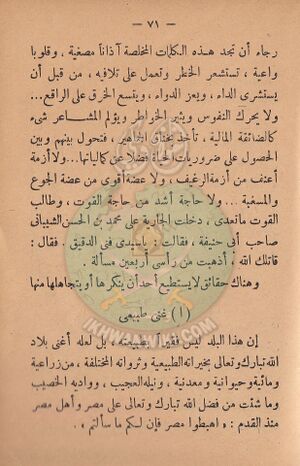 — ٧١ —
رجاء أن تجد هذه الكلمات المخلصة آذاناً مصغية ، وقلوبا
واعية ، تستشعر الخطر وتعمل على تلافيه ، من قبل أن
يستشرى الداء ، ويعز الدواء ، ويتسع الخرق على الراقع...
ولا يحرك النفوس ويثير الخواطر ويؤلم المشاعر شىء
كالضائقة المالية ، تأخذ بخناق الجماهير ، فتحول بينهم وبين
الحصول على ضروريات الحياة فضلا عن كمالياتها... ولا أزمة
أعنف من أزمة الرغيف ، ولا عضة أقوى من عضة الجوع
والمسغبة ... ولا حاجة أشد من حاجة القوت ، وطالب
القوت ما تعدى ، دخلت الجارية على محمد بن الحسن الشيبانى
صاحب أبى حنيفة ، فقالت : ياسيدى فنى الدقيق . فقال :
قاتلك الله ، أذهبت من رأسى أربعين مسألة .
وهناك حقائق لا يستطيع أحد أن ينكرها أو يتجاهلها منها
(١) غنى طبيعى
إن هذا البلد ليس فقيرا بطبيعته ، بل لعله أغنى بلاد
الله تبارك وتعالى بخيراته الطبيعية وثرواته المختلفة ، من زراعية
ومائية وحيوانية ومعدنية ، ونيله العجيب ، وواديه الخصيب
وما شئت من فضل الله تبارك وتعالى على مصر وأهل مصر
منذ القدم : « اهبطوا مصر فإن لكم ما سألتم » .
IKHWANWIKI.COM